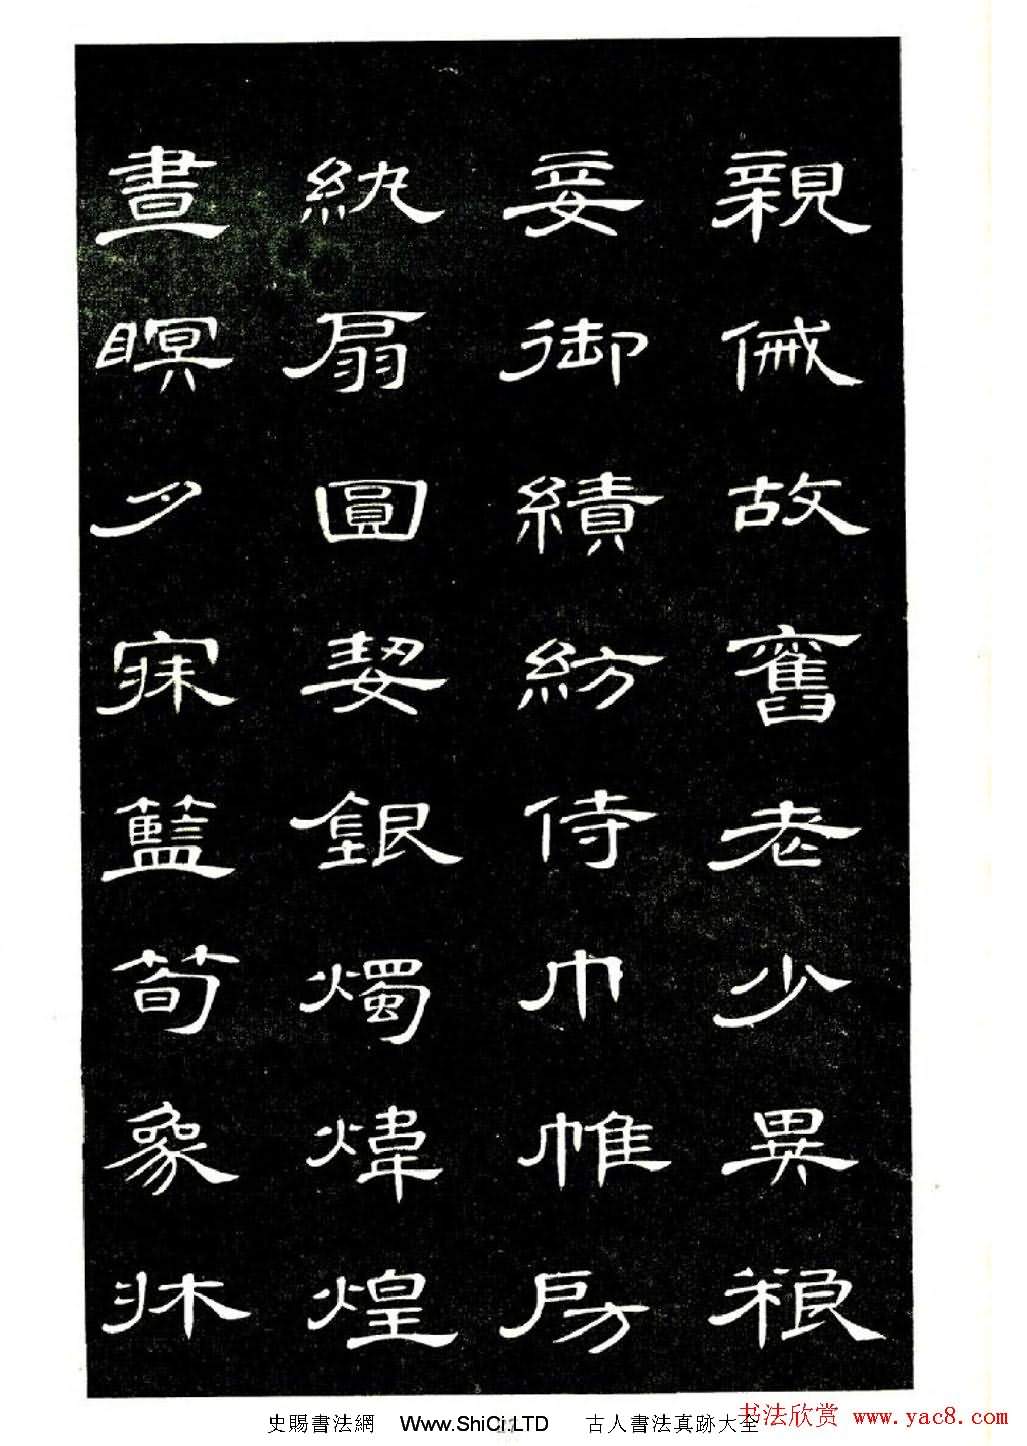 親傶故舊老少異粮
妾御績紡侍巾帷房
紈扇圓㛃銀燭煒煌
晝瞑夕寐籃筍象牀
史賜書法網 Www.ShiCi.LTD 古人書法真跡大全
书法欣赏 www.yac8.com